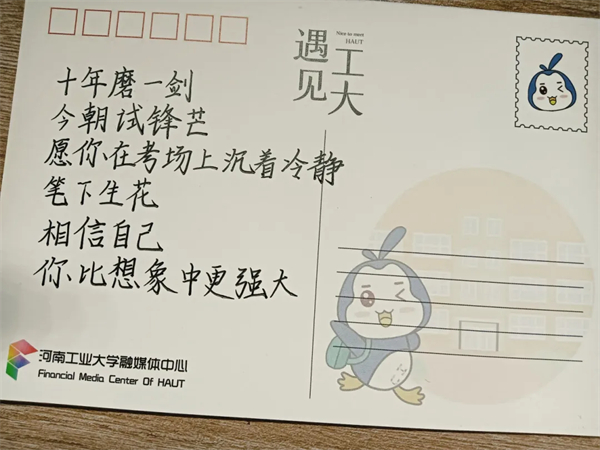 遇见
工大
Nice to meet
HAUT
十年磨一剑
今朝试锋芒
愿你在考场上沉着冷静
笔下生花
相信自己
你比想象中更强大
河南工业大学融媒体中心
Financial Media Center Of HAUT